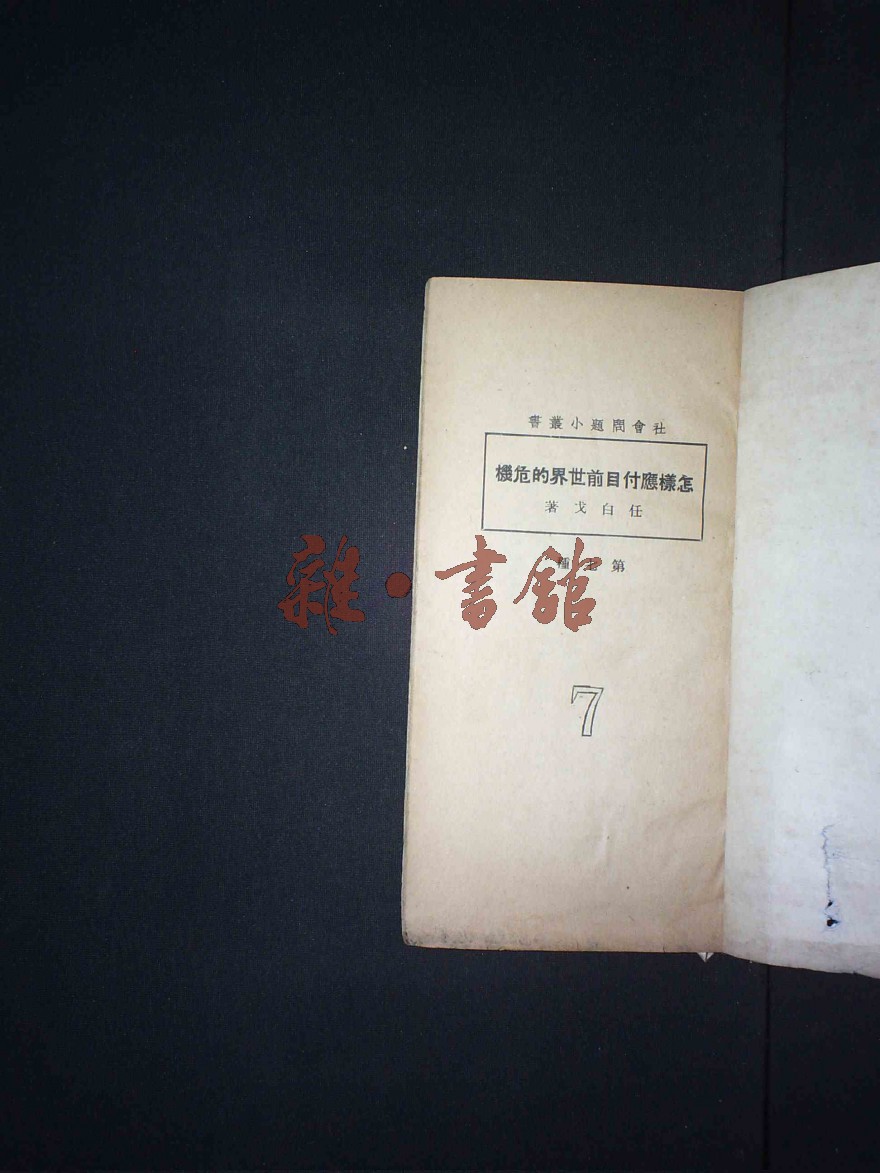 社會問題小叢書
怎樣應付目前世界的危機
任白戈著
第七種
雜·書館
7